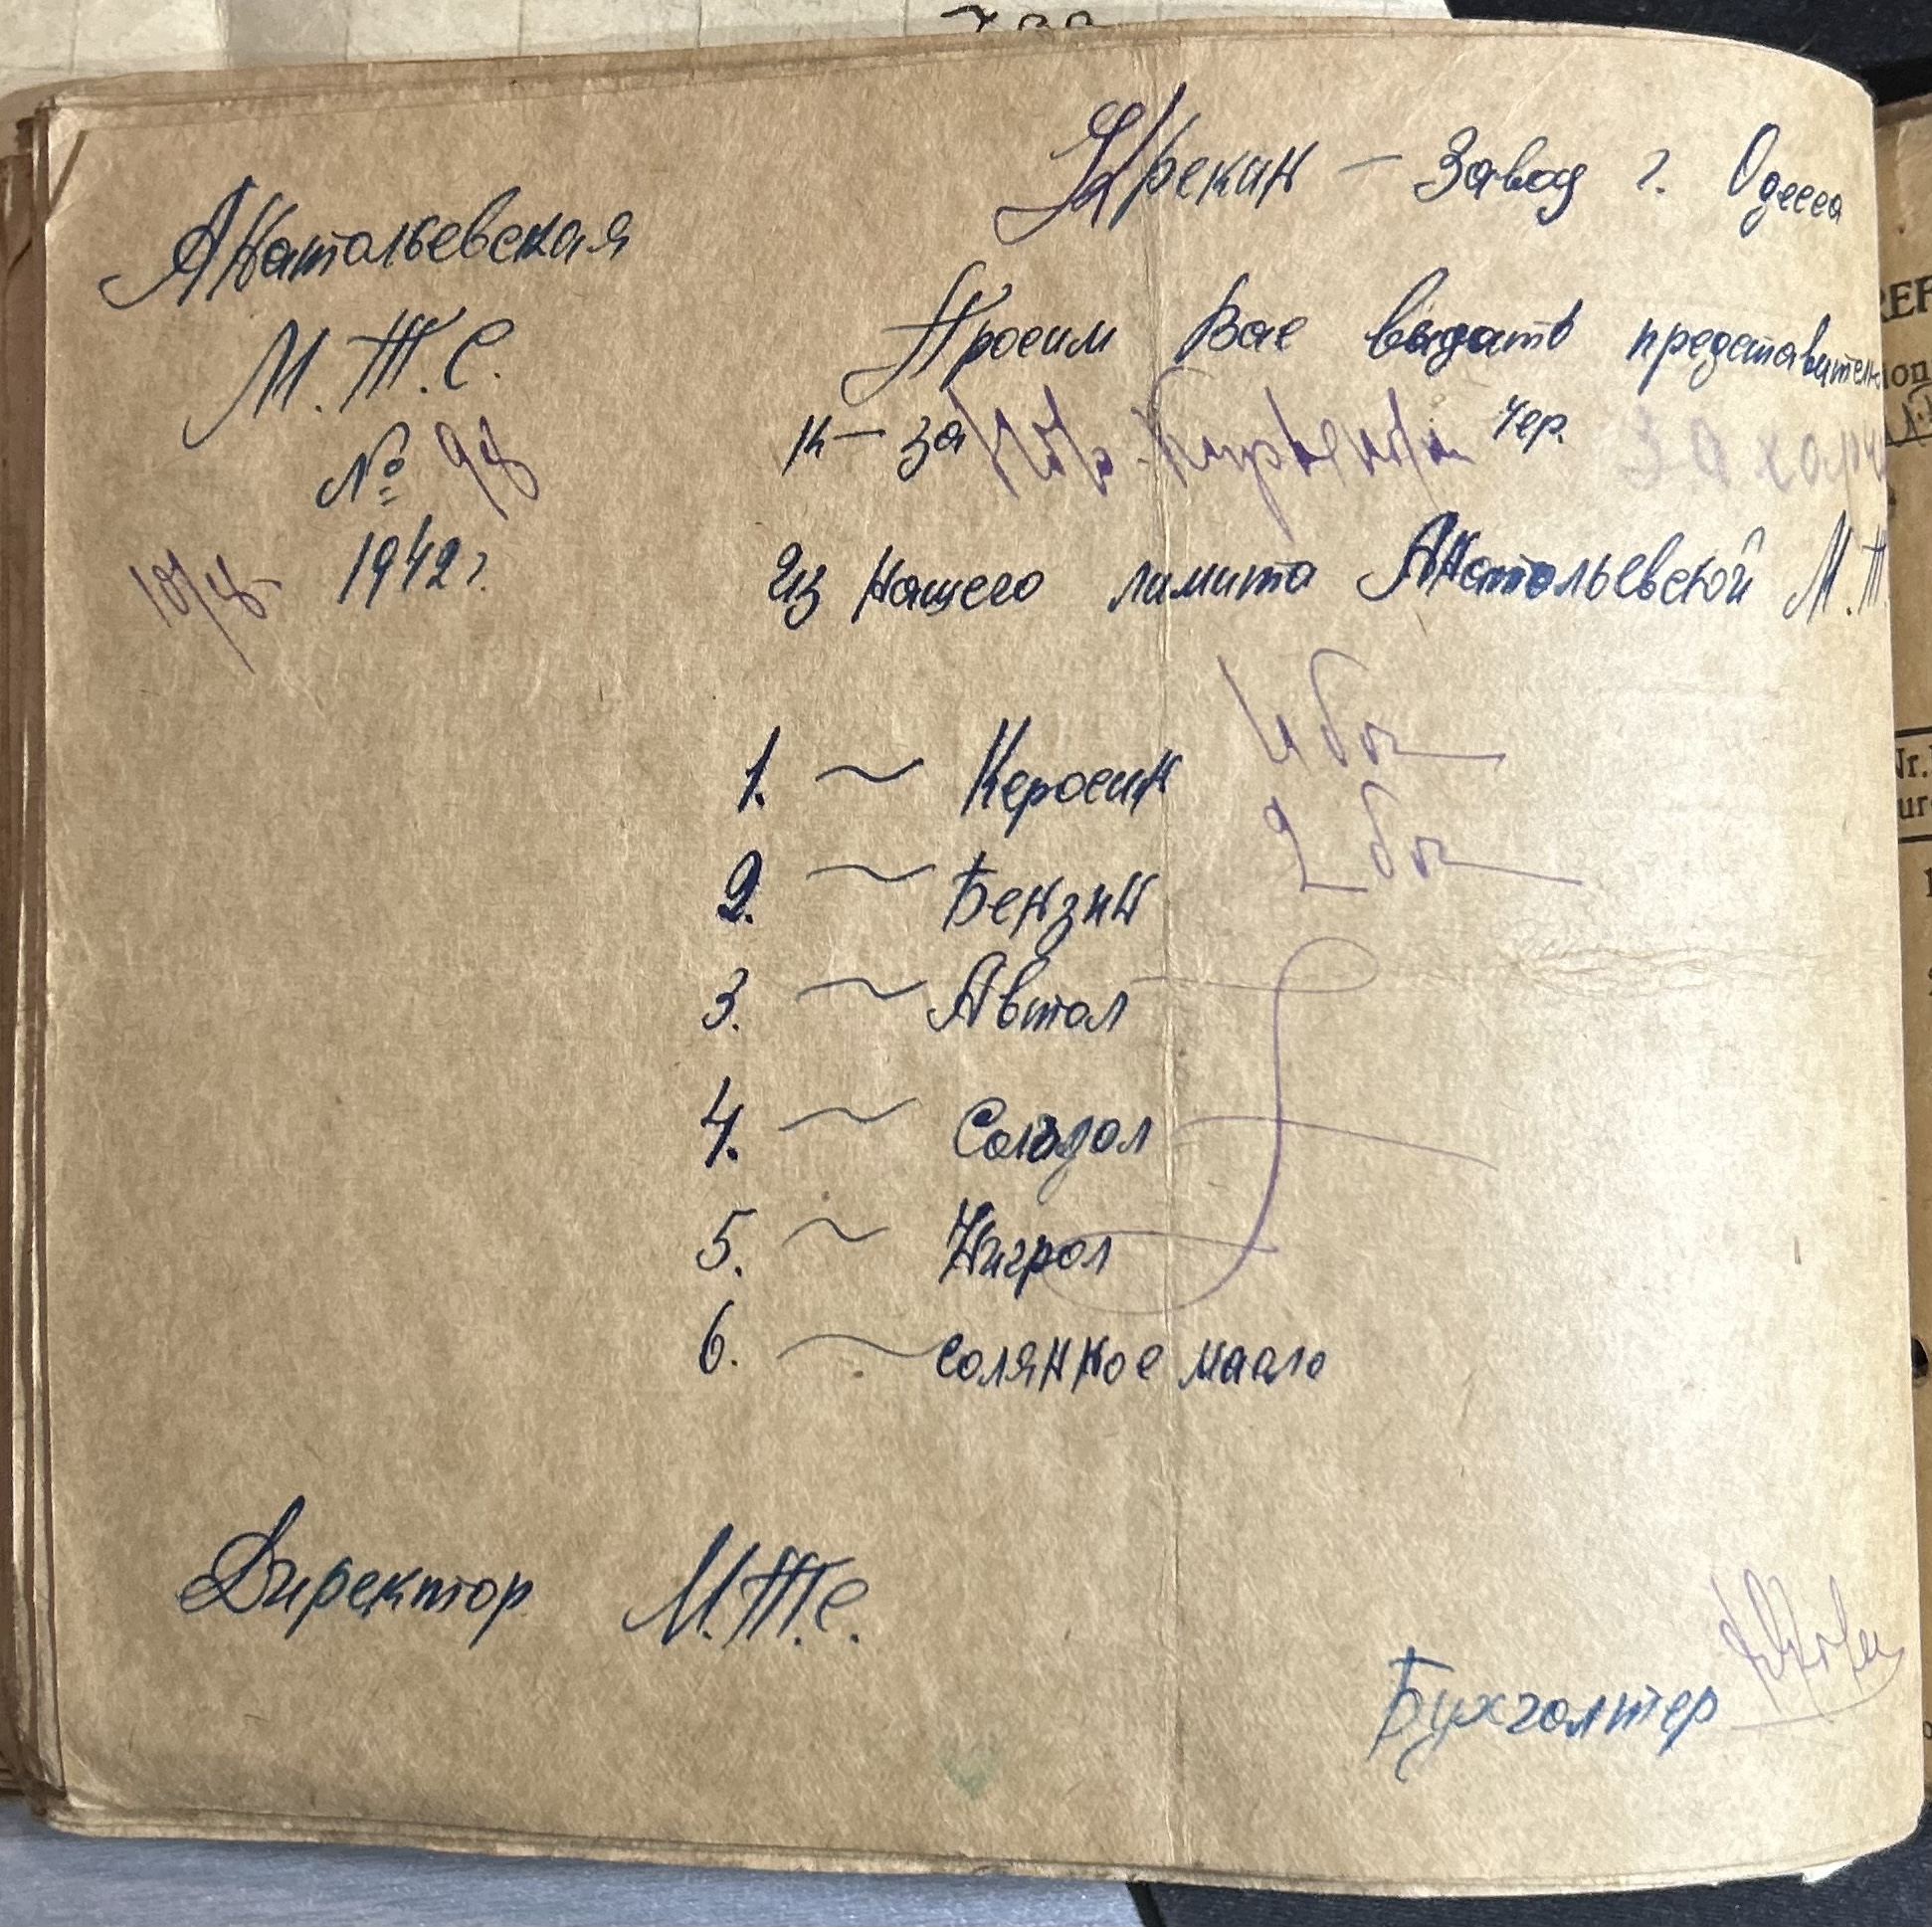 Крекин – Завод г. Одесса
Анатольевская
М.Т.С.
№ 98
10/4- 1942 г.
Просим Вас выдать представителю
к–за чер. Захарч
из нашего лимита Анатольевской М.Т.
1. ~ Керосин 4 боч
2. ~ Бензин 2 боч
3. ~ Автол
4. ~ Солидол
5. ~ Нигрол
6. ~ солянкое масло
Директор М.Т.С.
Бухголтер